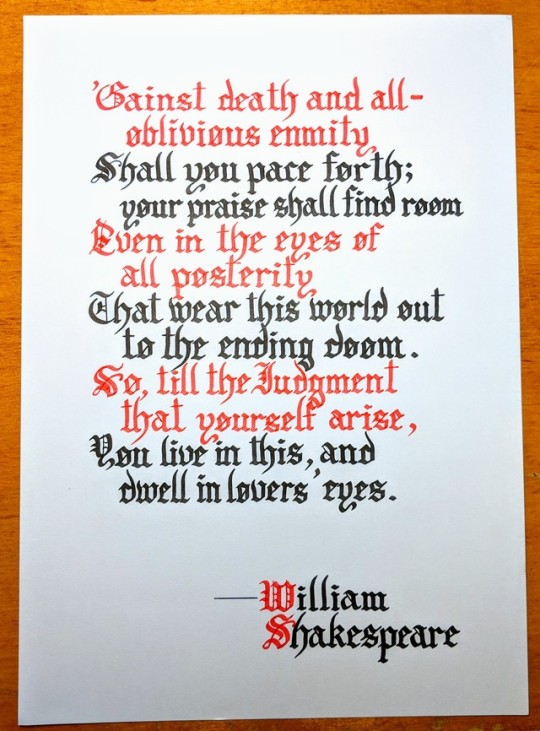 'Gainst death and all-
oblivious enmity
Shall you pace forth;
your praise shall find room
Even in the eyes of
all posterity
That wear this world out
to the ending doom.
So, till the Judgment
that yourself arise,
You live in this, and
dwell in lovers' eyes.
—William
Shakespeare